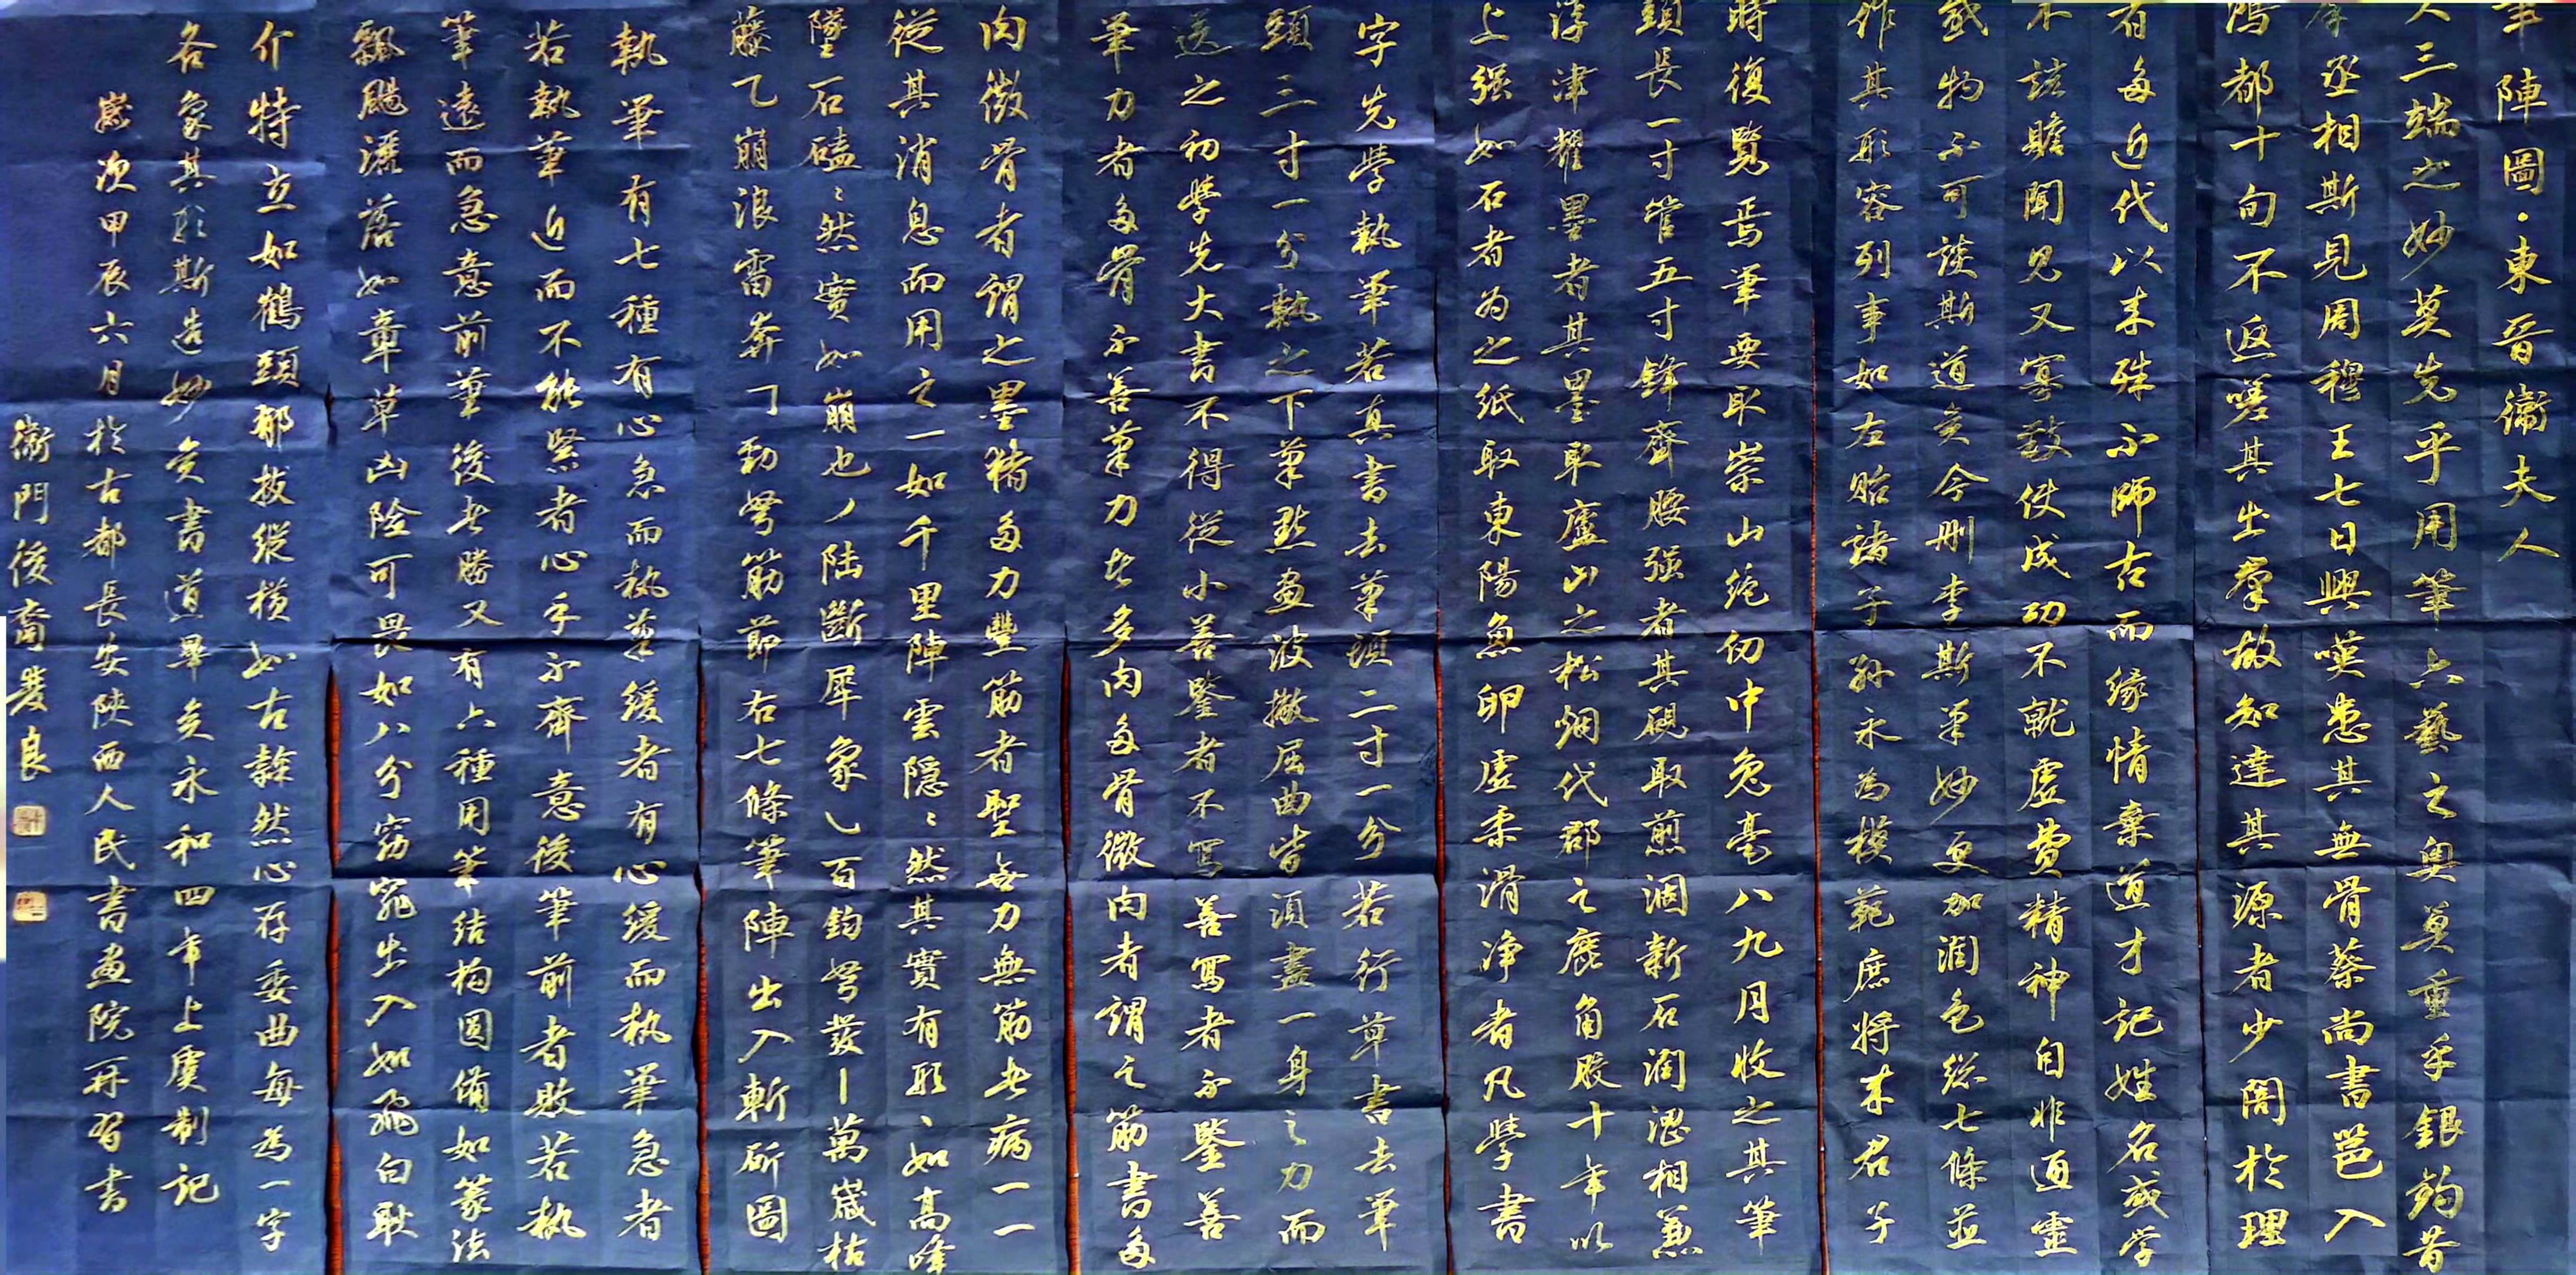 筆陣圖·東晉衞夫人
夫三端之妙莫先乎用筆六藝之奥莫重乎銀鈎昔
秦丞相斯見周穆王七日興嘆患其無骨蔡尚書邕入
鴻都十旬不返嗟其出羣故知達其源者少闇於理
者多近代以来殊不師古而緣情棄道才記姓名或学
不該贍聞見又寡致使成功不就虚費精神自非通靈
感物不可談斯道矣今刪李斯筆妙更加潤色總七條並
作其形容列事如左貽諸子孫永為模範庶将来君子
時復覧焉筆要取崇山絶仞中兔毫八九月收之其筆
頭長一寸管五寸鋒齊腰强者其硯取煎涸新石潤澀相兼
浮津耀墨者其墨取廬山之松烟代郡之鹿角膠十年以
上强如石者为之紙取東陽魚卵虚柔滑净者凡學書
字先學執筆若真書去筆頭二寸一分若行草書去筆
頭三寸一分執之下筆點畫波撇屈曲皆須盡一身之力而
送之初學先大書不得從小善鑒者不寫善寫者不鑒善
筆力者多骨不善筆力者多肉多骨微肉者謂之筋書多
肉微骨者謂之墨猪多力豐筋者聖無力無筋者病一一
從其消息而用之一如千里陣雲隠〻然其實有形丶如高峰
墜石磕〻然實如崩也丿陆斷犀象㇂百鈞弩發丨萬歲枯
藤乙崩浪雷奔㇆勁弩筋節右七條筆陣出入斬斫圖
執筆有七種有心急而執筆緩者有心緩而執筆急者
若執筆近而不能緊者心手不齊意後筆前者敗若執
筆遠而急意前筆後者勝又有六種用筆结构圆俻如篆法
飄颺灑落如章草凶险可畏如八分窈窕出入如飛白耿
介特立如鶴頭郁拔縱横如古隸然心存委曲每為一字
各象其形斯造妙矣書道畢矣永和四年上虞制記
歲次甲辰六月於古都長安陕西人民書畫院再習書
衞門後裔發良